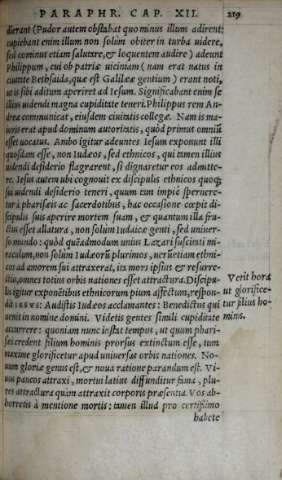 PARAPHR. CAP. XII. 219
dierant (Pudor autem obstabat quo minus illum adirent:
cupiebant enim illum non solum obiter in turba uidere,
sed cominus etiam salutare, & loquentem audire) adeunt
Philippum, cui ob patriæ uicinitam (nam erat natus in
ciuitate Bethsaida, quæ est Galileæ gentium) erant noti,
ut is sibi aditum aperiret ad Iesum. Significabant enim se
illius uidendi magna cupiditate teneri. Philippus rem An-
dreæ communicat, eiusdem ciuitatis collegæ. Nam is ma-
ioris erat apud dominum autoritatis, quòd primus omniũ
esset uocatus. Ambo igitur adeuntes Iesum exponunt illi
quosdam esse, non Iudæos, sed ethnicos, qui tamen illius
uidendi desiderio flagrarent, si dignaretur eos admitte-
re. Iesus autem ubi cognouit ex discipulis ethnicos quoq;
sui uidendi desiderio teneri, quum tam impiè sperneretur
à pharisæis ac sacerdotibus, hac occasione cœpit di-
scipulis suis aperire mortem suam, & quantum illa fru-
ctus esset allatura, non solum Iudaicæ genti, sed uniuer-
so mundo: quòd quẽadmodum unius Lazari suscitati mi-
raculum, non solum Iudæorũ plurimos, uerùmetiam ethni-
cos ad amorem sui attraxerat, ita mors ipsius & resurre-
ctio, omnes totius orbis nationes esset attractura. Discipu-
lis igitur exponẽtibus ethnicorum pium affectum, respon-
dit IESVS: Audistis Iudæos acclamantes: Benedictus qui
uenit in nomine domini. Videtis gentes simili cupiditate
accurrere: quoniam nunc instat tempus, ut quum phari-
sæi credent filium hominis prorsus extinctum esse, tum
maxime glorificetur apud uniuersas orbis nationes. No-
uum gloriæ genus est, & noua ratione parandum est. Vi-
uus paucos attraxi, mortuus latius diffunditur fama, plu-
res attractura quàm attraxit corporis præsentia. Vos ab-
horretis à mentione mortis: tamen illud pro certissimo
habete
Venit hora
ut glorifice-
tur filius ho-
minis.